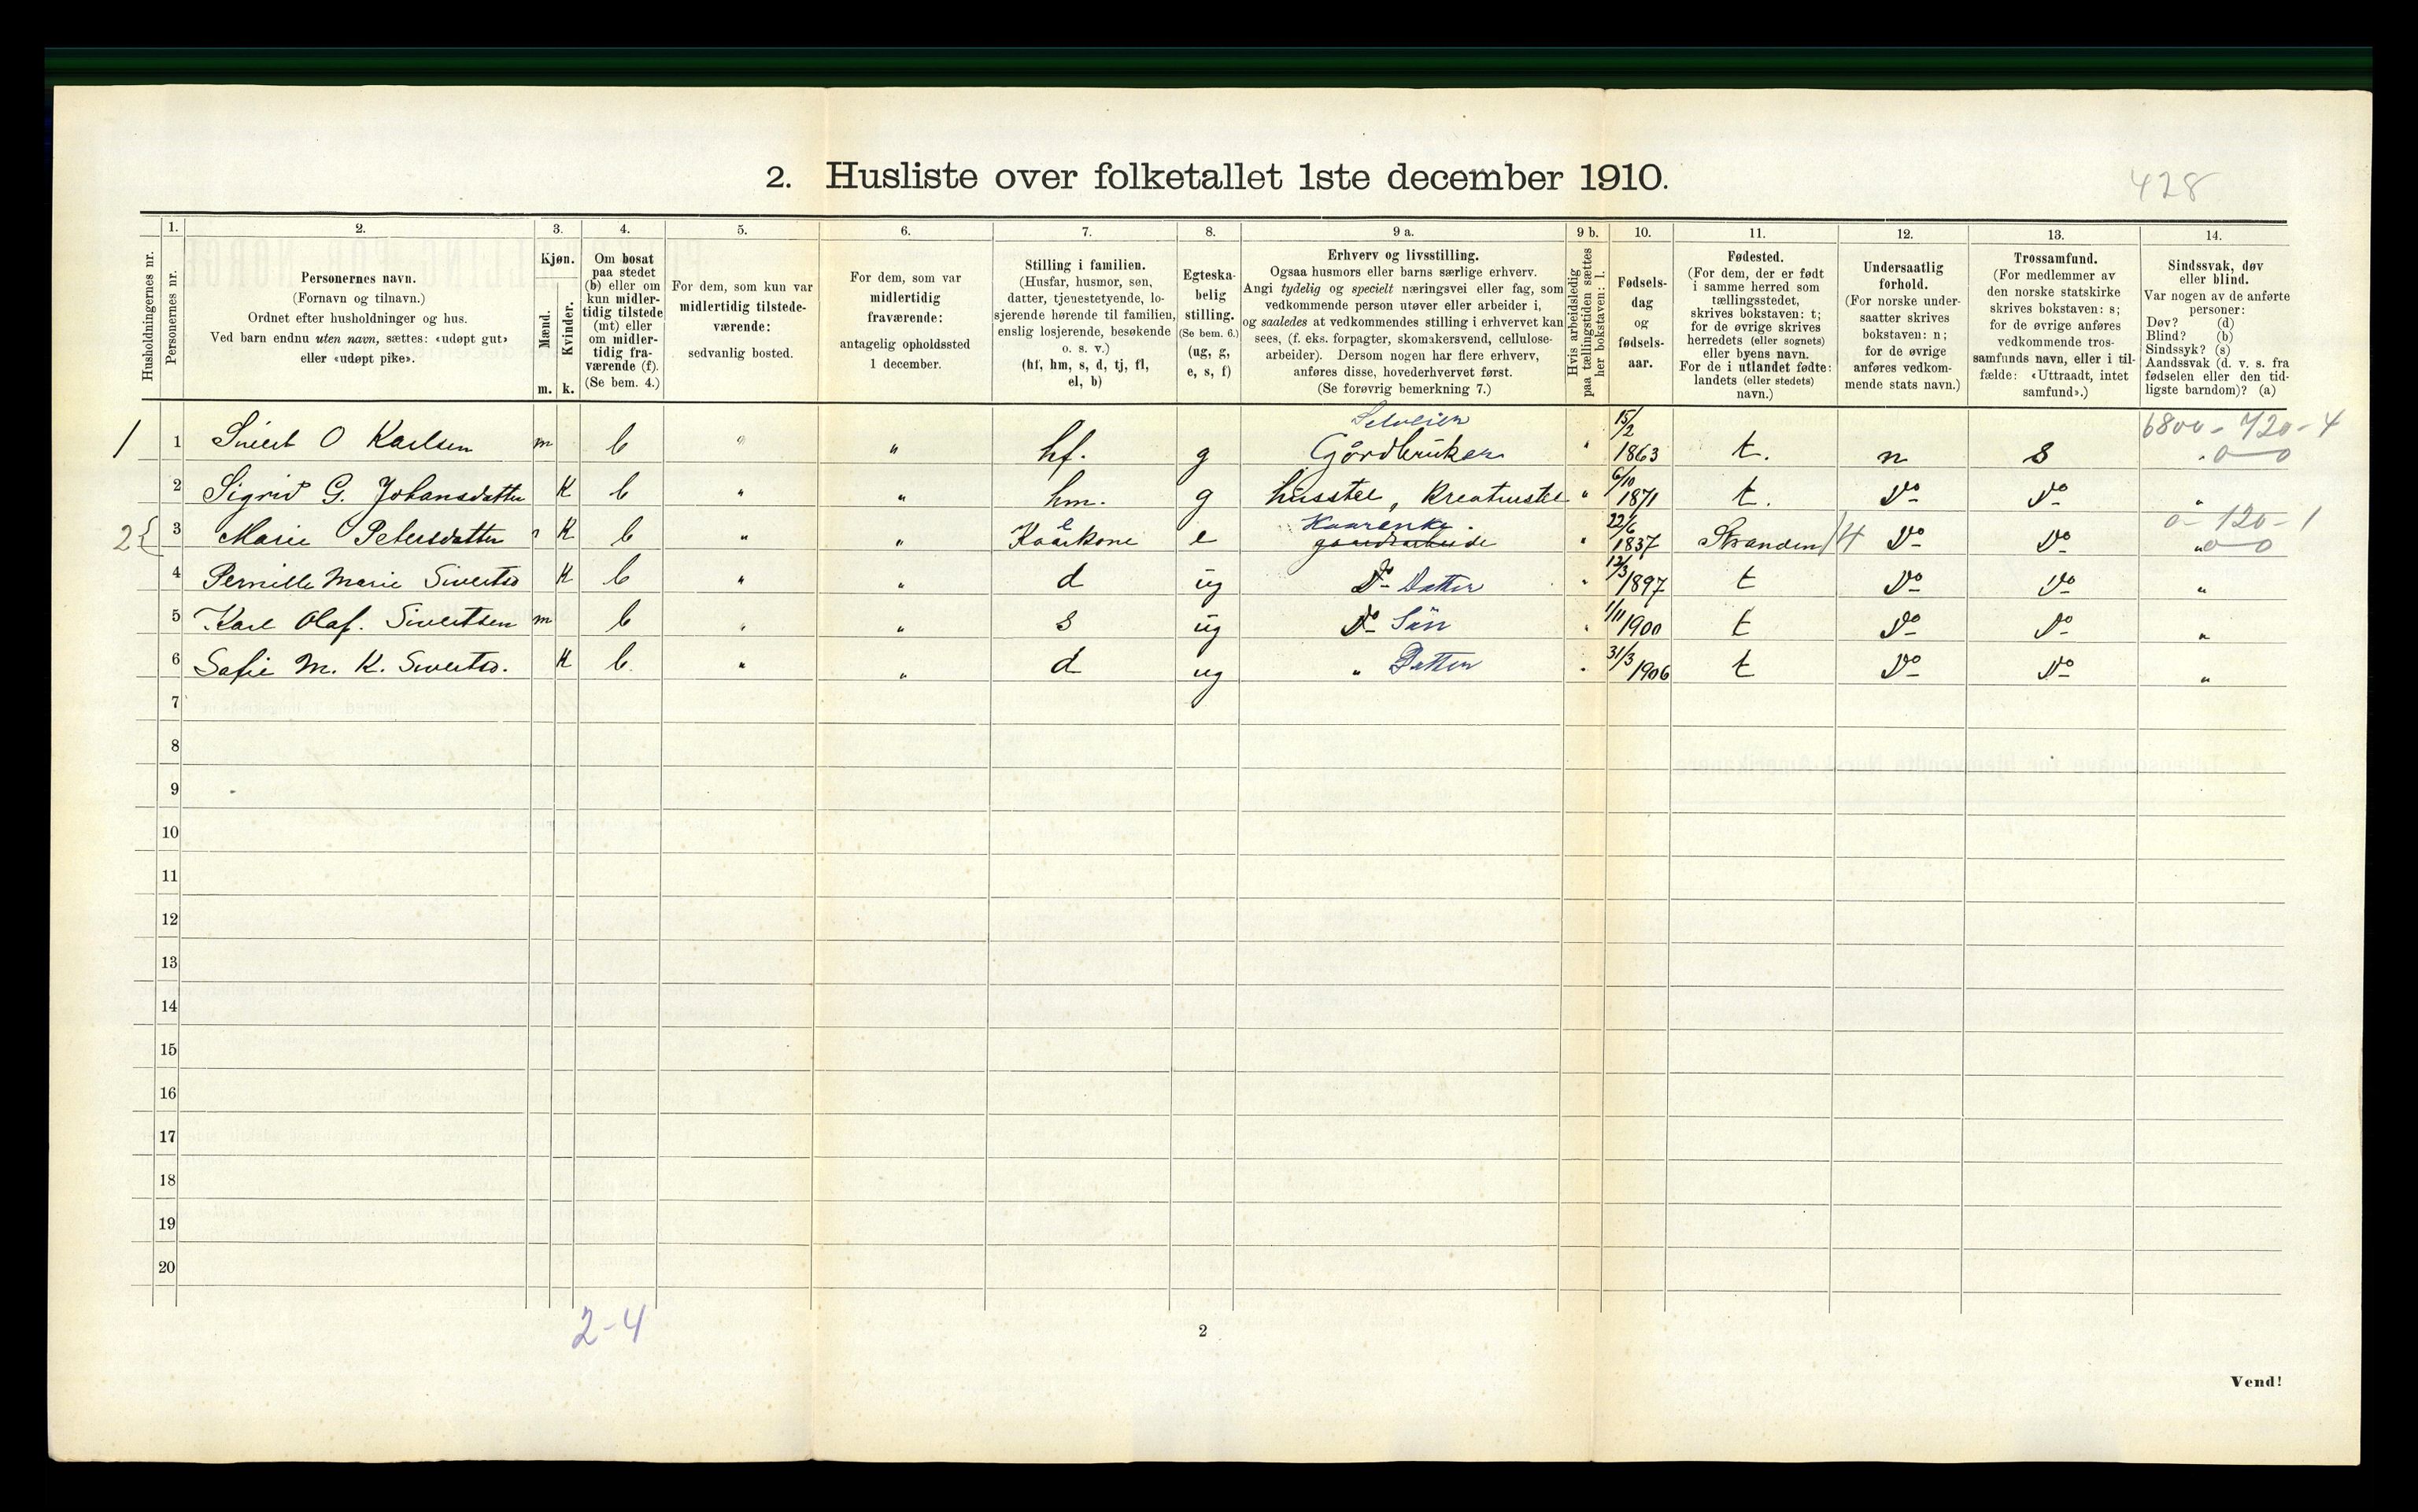 2. Husliste over folketallet 1ste december 1910.
428
Husholdningernes nr.
1.
Personernes nr.
2.
Personernes navn.
(Fornavn og tilnavn.)
Ordnet efter husholdninger og hus.
Ved barn endnu uten navn, sættes: «udøpt gut»
eller «udøpt pike».
3.
Kjøn.
Mænd.
m.
Kvinder.
k.
4.
Om bosat
paa stedet
(b) eller om
kun midler-
tidig tilstede
(mt) eller
om midler-
tidig fra-
værende (f).
(Se bem. 4.)
5.
For dem, som kun var
midlertidig tilstede-
værende:
sedvanlig bosted.
6.
For dem, som var
midlertidig
fraværende:
antagelig opholdssted
1 december.
7.
Stilling i familien.
(Husfar, husmor, søn,
datter, tjenestetyende, lo-
sjerende hørende til familien,
enslig losjerende, besøkende
o. s. v.)
(hf, hm, s, d, tj, fl,
el, b)
8.
Egteska-
belig
stilling.
(Se bem. 6.)
(ug, g,
e, s, f)
9 a.
Erhverv og livsstilling.
Ogsaa husmors eller barns særlige erhverv.
Angi tydelig og specielt næringsvei eller fag, som
vedkommende person utøver eller arbeider i,
og saaledes at vedkommendes stilling i erhvervet kan
sees, (f. eks. forpagter, skomakersvend, cellulose-
arbeider). Dersom nogen har flere erhverv,
anføres disse, hovederhvervet først.
(Se forøvrig bemerkning 7.)
9 b.
Hvis arbeidsledig
paa tællingstiden sættes
her bokstaven: l.
10.
Fødsels-
dag
og
fødsels-
aar.
11.
Fødested.
(For dem, der er født
i samme herred som
tællingsstedet,
skrives bokstaven: t;
for de øvrige skrives
herredets (eller sognets)
eller byens navn.
For de i utlandet fødte:
landets (eller stedets)
navn.)
12.
Undersaatlig
forhold.
(For norske under-
saatter skrives
bokstaven: n;
for de øvrige
anføres vedkom-
mende stats navn.)
13.
Trossamfund.
(For medlemmer av
den norske statskirke
skrives bokstaven: s;
for de øvrige anføres
vedkommende tros-
samfunds navn, eller i til-
fælde: «Uttraadt, intet
samfund».)
14.
Sindssvak, døv
eller blind.
Var nogen av de anførte
personer:
Døv? (d)
Blind? (b)
Sindssyk? (s)
Aandssvak (d. v. s. fra
fødselen eller den tid-
ligste barndom)? (a)
Selveier 15/2 6800 - 720 - 4
1 1 Sivert O Karlsen m b " " hf. g Gårdbruker " 1863 t. n s " 0 0
2 Sigrid G. Johansdatter K b " " hm. g husstel, Kreaturstel " 6/10 1871 t. Do Do "
Kaarenke 0 - 120 - 1
2 3 Marie Petersdatter K b " " Kårkone e gaardarbeide " 22/6 1837 Stranden 14 Do Do " 0 0
4 Pernille Marie Sivertsd K b " " d ug Do Datter " 12/3 1897 t Do Do "
5 Karl Olaf. Sivertsen m b " " s ug Do Sön " 1/11 1900 t Do Do "
6 Safie M. K. Sivertsd. K b. " " d ug " Datter " 31/3 1906 t Do Do "
7
8
9
10
11
12
13
14
15
16
17
18
19
20
2-4
2
Vend!